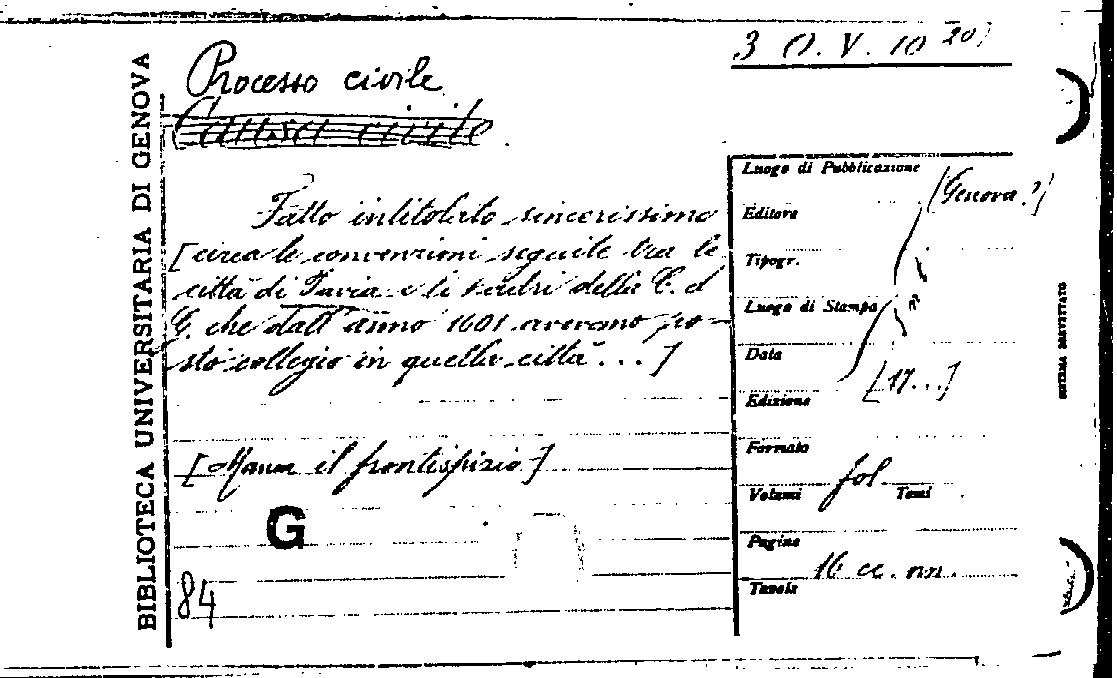 3 O. V. 10 20)
Processo civile
Causa civile
Fatto intitolato sincerissimo
[circa le convenzioni seguite tra la
città di Pavia e li padri della C. d
G. che dall' anno 1601 averono po-
sto collegio in quella città ... ]
[Manca il frontispizio]
G
84
BIBLIOTECA UNIVERSITARIA DI GENOVA
Luogo di Pubblicazione
(Genova?)
Editore
Tipogr.
Luogo di Stampa
Data
[17...]
Edizione
Formato
fol.
Volumi Tomi
Pagine
16 cc. nn.
Tavole